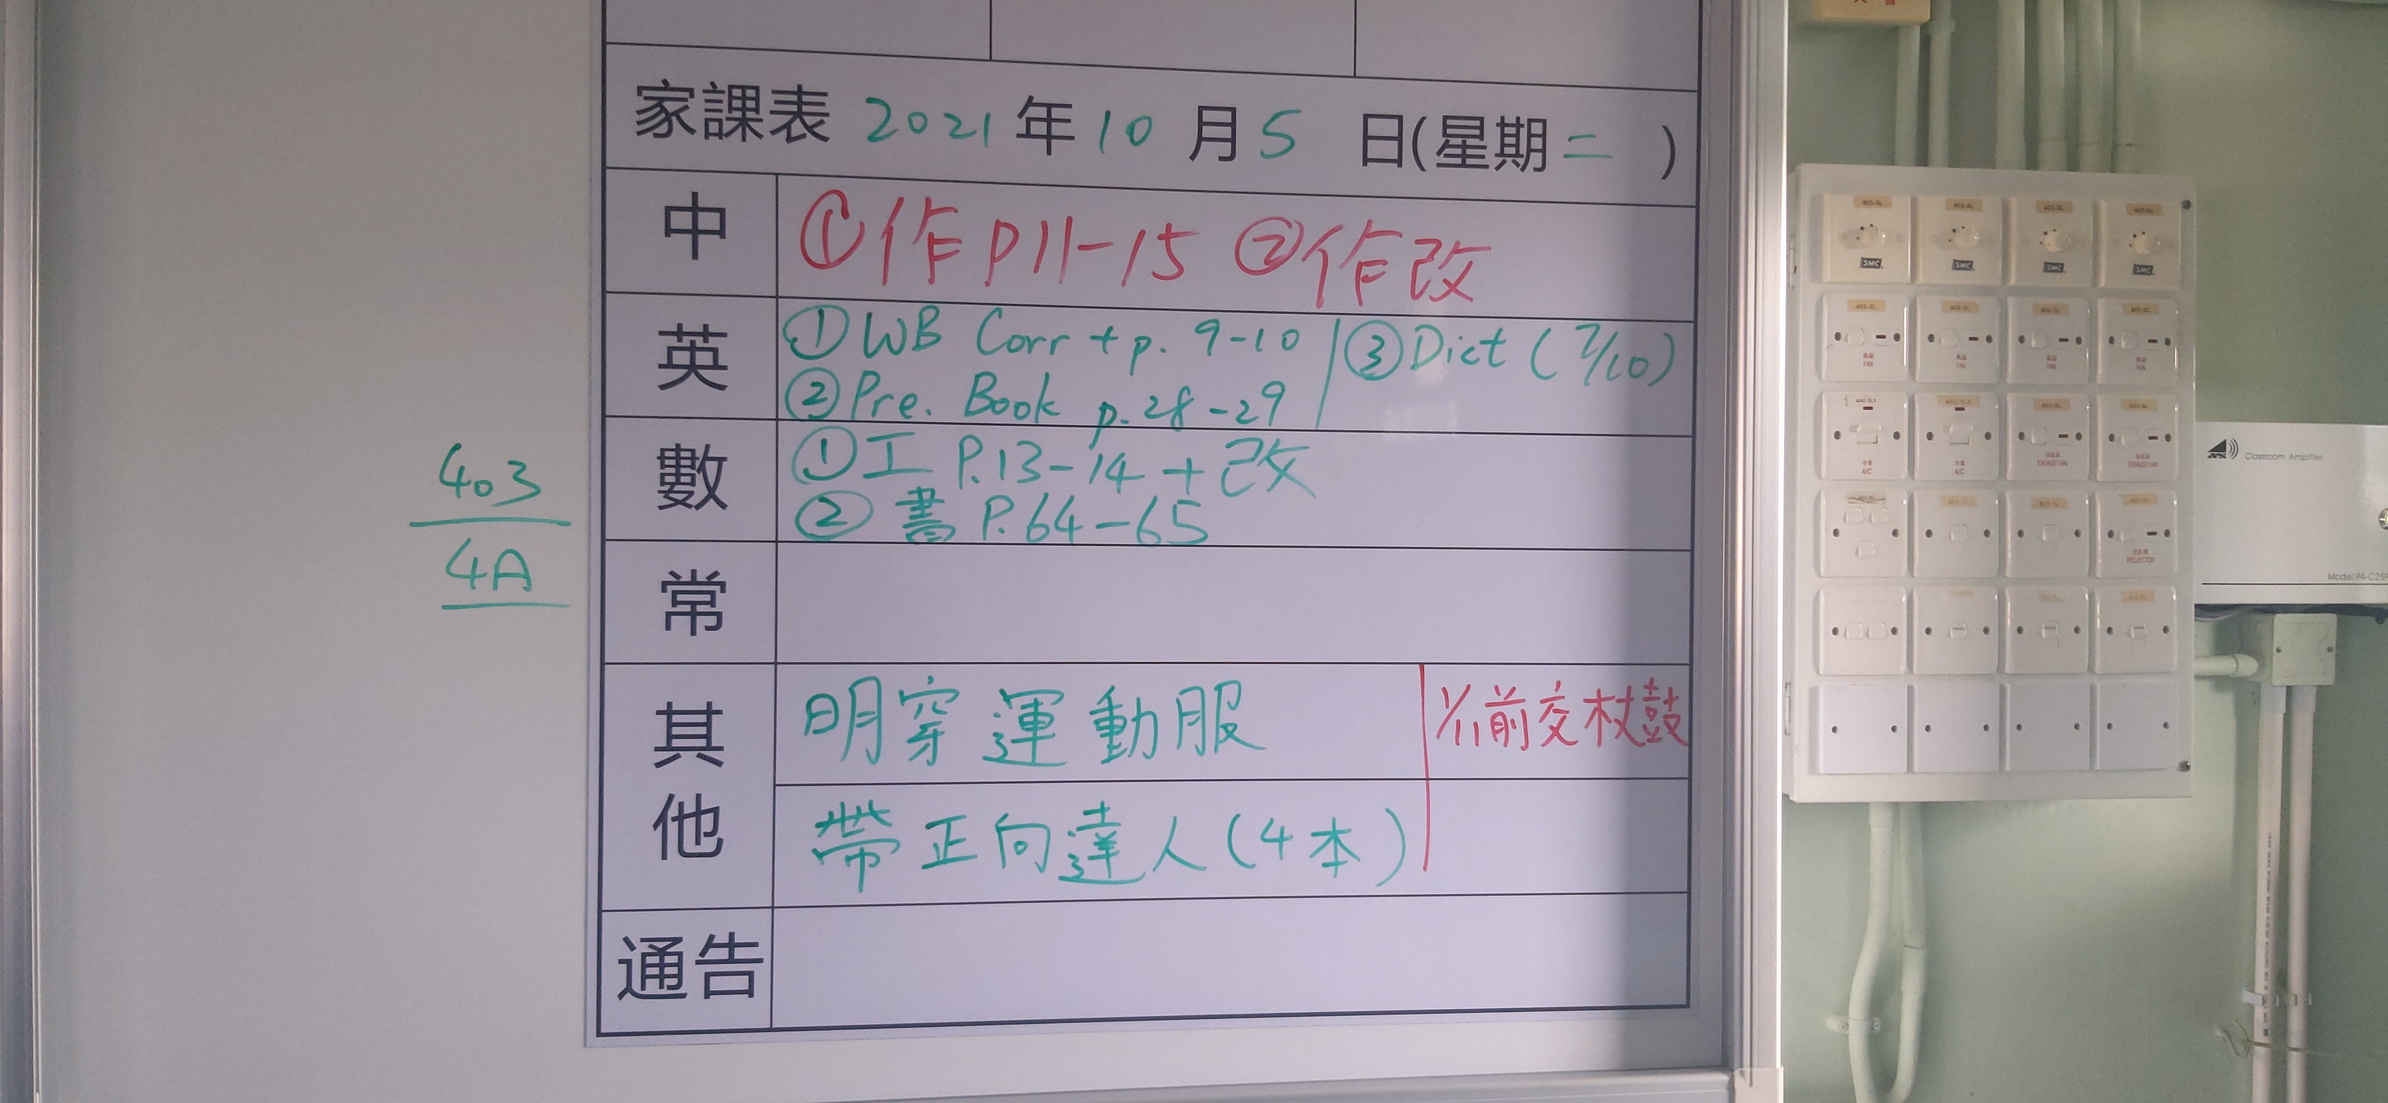 家課表 2021 年 10 月 5 日(星期二 )
中 ①作P11-15 ②作改
英 ①WB Corr + p. 9-10 ③Dict (7/10)
②Pre. Book p.28-29
數 ①工 P.13-14 + 改
②書 P.64-65
403
4A
常
其他
明穿運動服 前交杖鼓
帶正向達人(4本)
通告
SMC
SMC
SMC
SMC
Classroom Amplifier